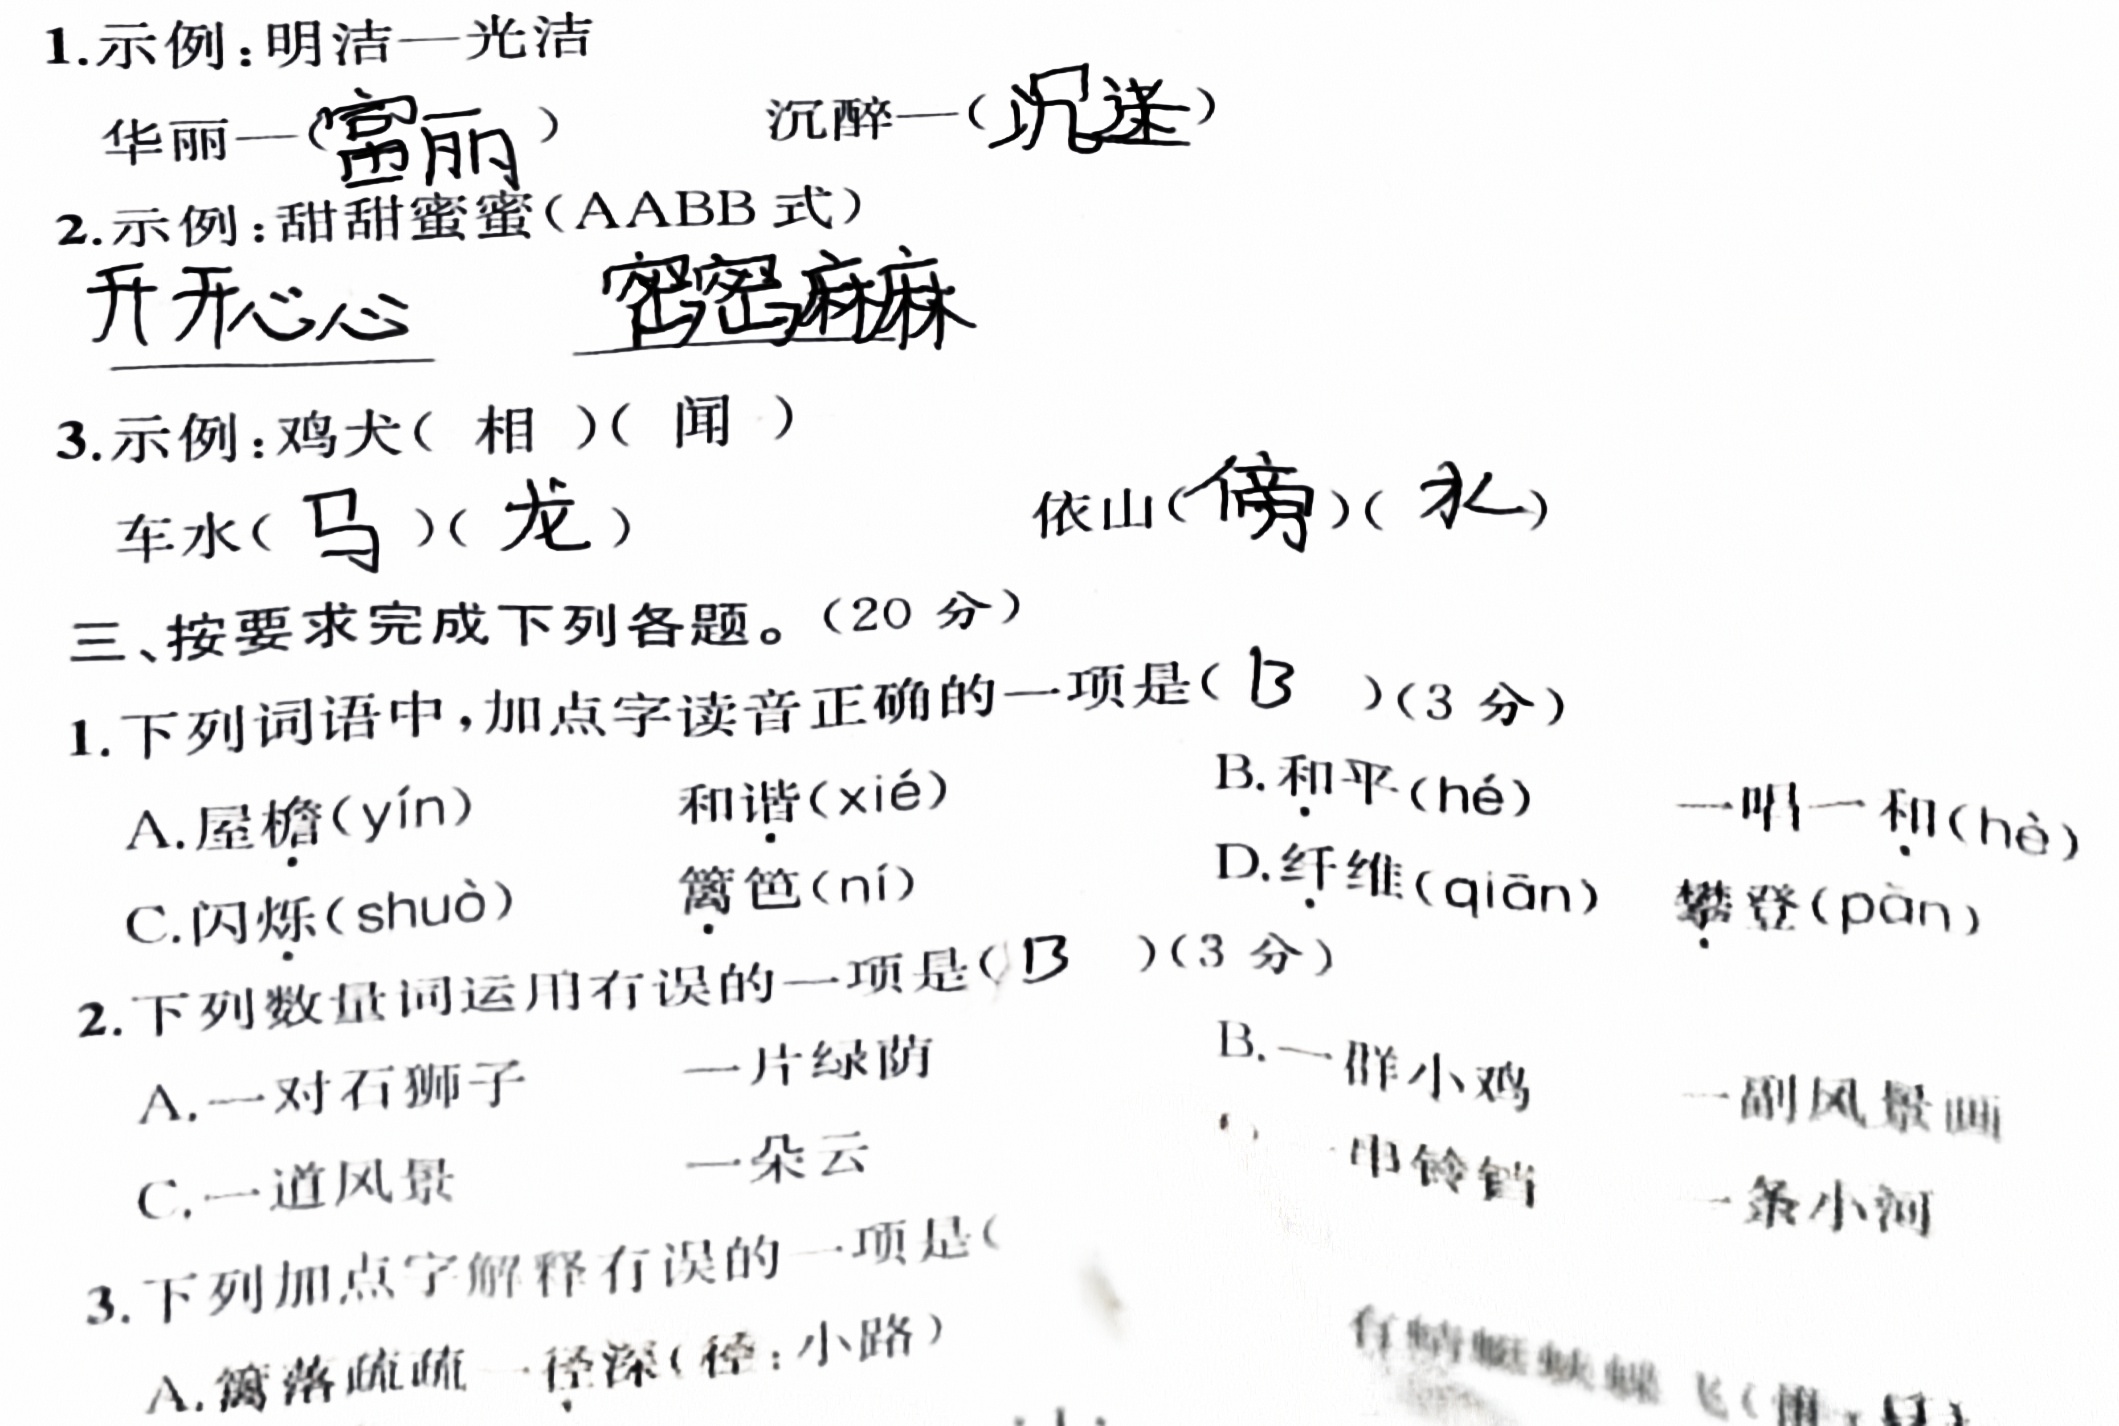 1.示例:明洁—光洁
华丽—(富丽) 沉醉—(沉迷)
2.示例:甜甜蜜蜜(AABB式)
开开心心 密密麻麻
3.示例:鸡犬( 相 )( 闻 )
车水( 马 )( 龙 ) 依山(傍)( 水 )
三、按要求完成下列各题。(20 分)
1.下列词语中,加点字读音正确的一项是( B )(3 分)
A.屋檐(yín) 和谐(xié) B.和平(hé) 一唱一和(hè)
C.闪烁(shuò) 篱笆(ní) D.纤维(qiān) 攀登(pàn)
2.下列数量词运用有误的一项是( B )(3 分)
A.一对石狮子 一片绿荫 B.一群小鸡 一副风景画
C.一道风景 一朵云 一串铃铛 一条小河
3.下列加点字解释有误的一项是(
A.篱落疏疏一径深(径:小路) 有蜻蜓蛱蝶飞(